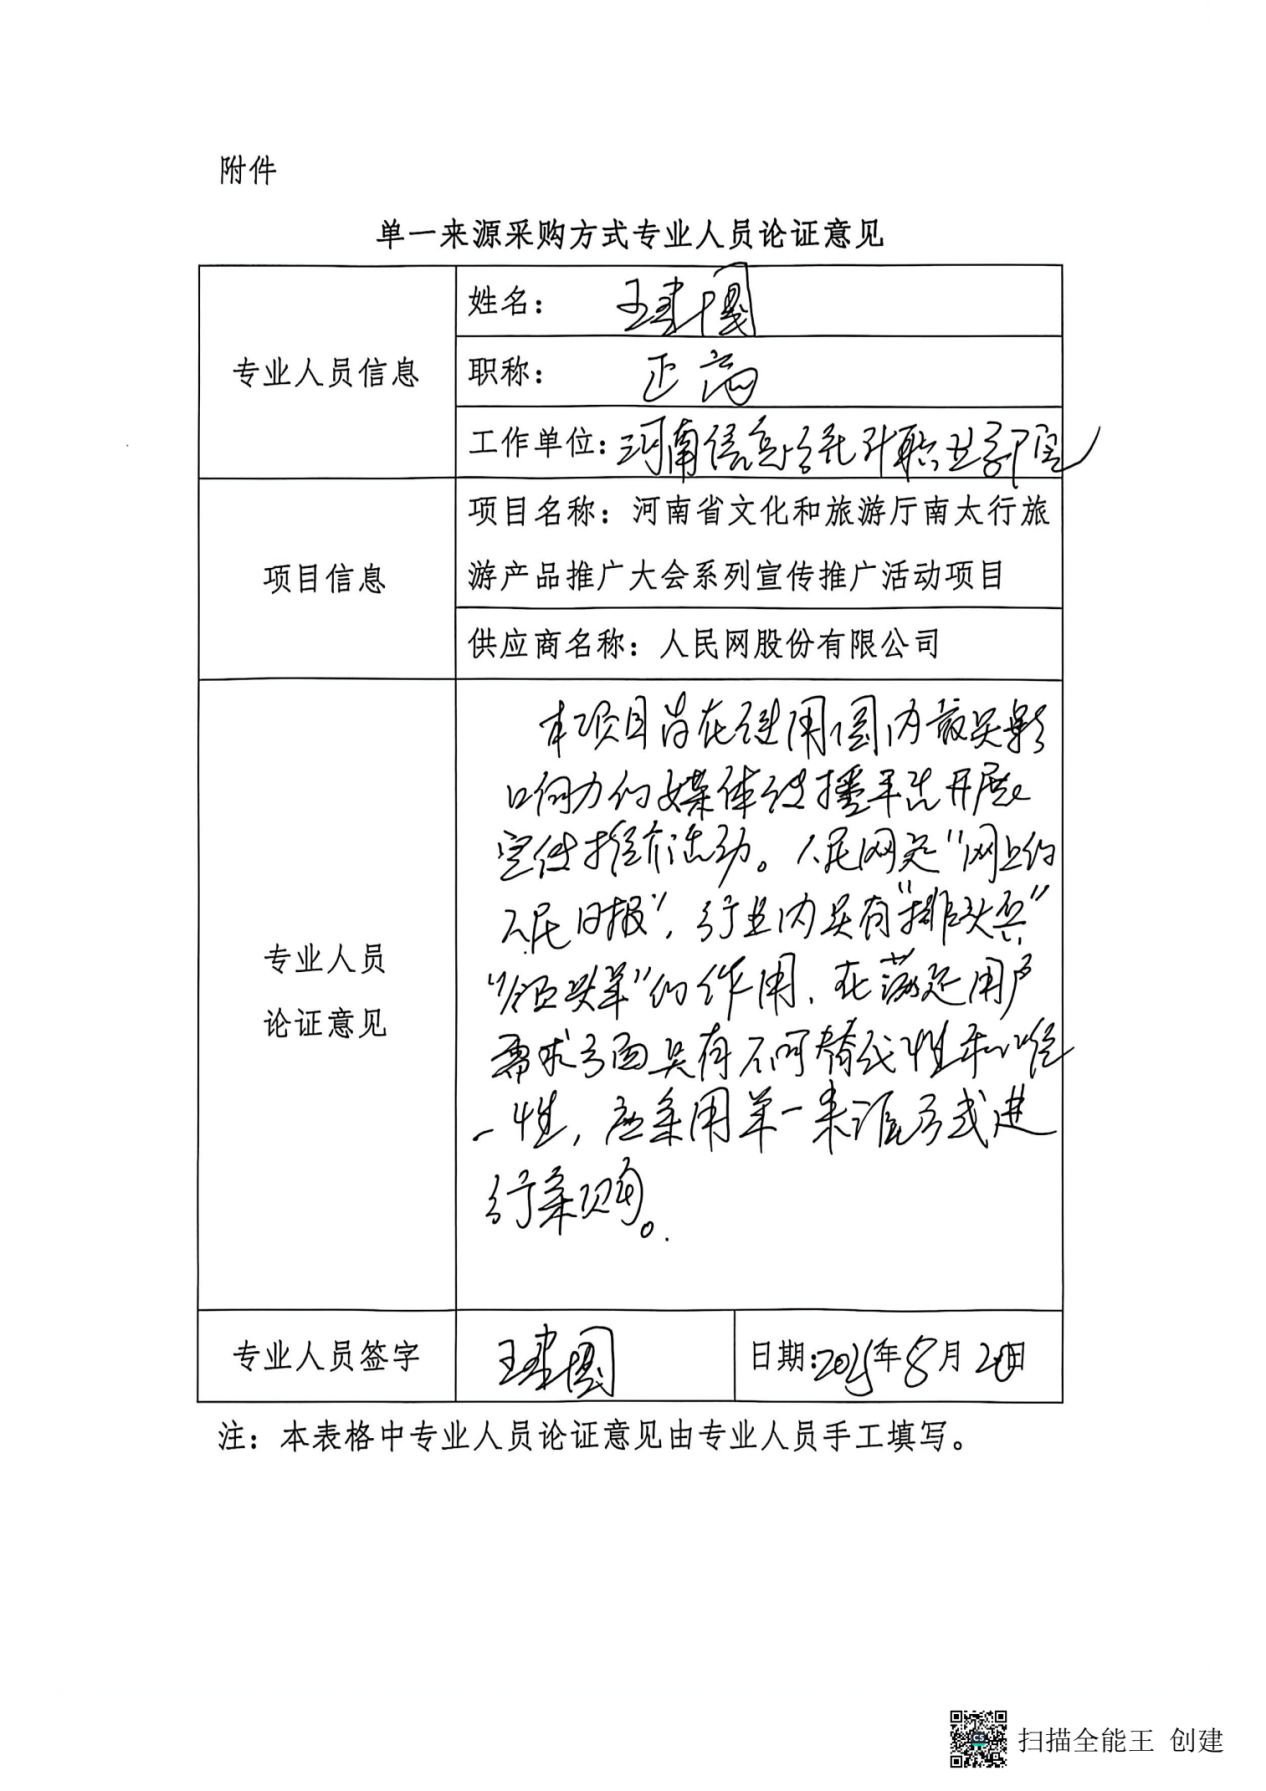 附件
单一来源采购方式专业人员论证意见
专业人员信息
姓名： 王建国
职称： 正高
工作单位：河南信息统计职业学院
项目信息
项目名称：河南省文化和旅游厅南太行旅
游产品推广大会系列宣传推广活动项目
供应商名称：人民网股份有限公司
专业人员
论证意见
本项目旨在使用国内最具影
响力的媒体传播平台开展
宣传推介活动。人民网是“网上的
人民日报”，行业内具有“排头兵”
“领头羊”的作用，在满足用户
需求方面具有不可替代性和唯
一性，应采用单一来源方式进
行采购。
专业人员签字
王建国
日期:2025年8月20日
注：本表格中专业人员论证意见由专业人员手工填写。
扫描全能王 创建